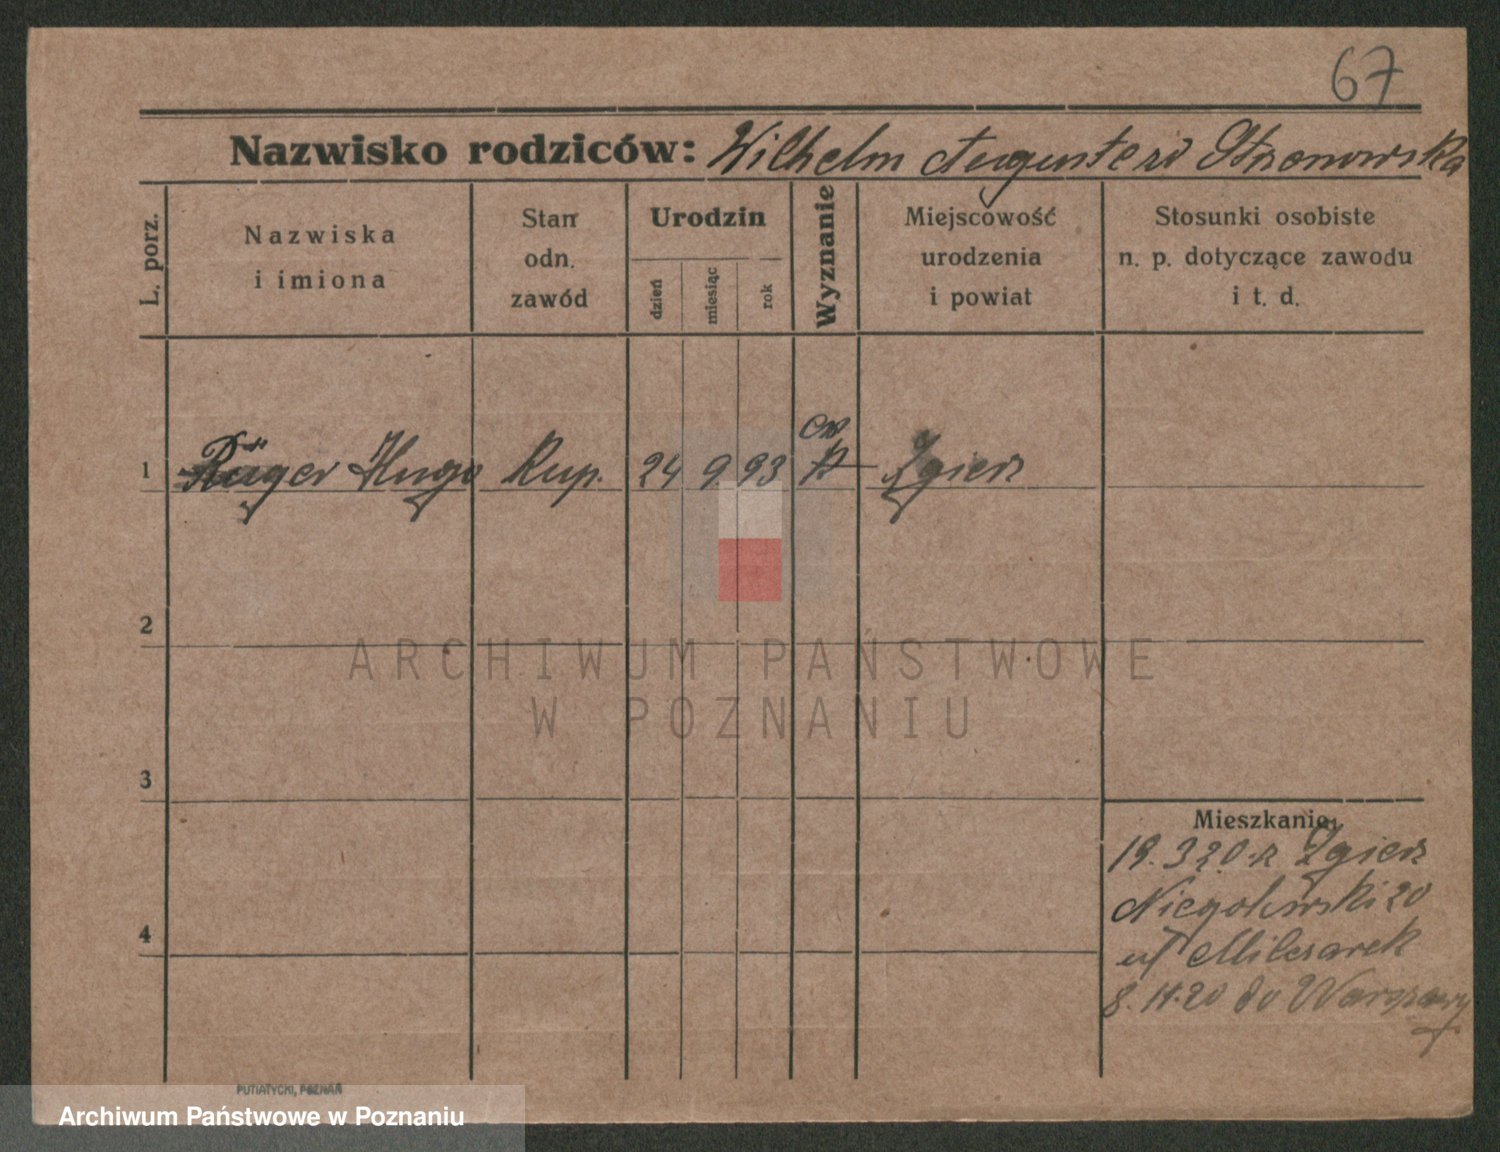 67
Nazwisko rodziców: Wilhelm Auguste zd
L. porz.
Nazwiska
i imiona
Stan
odn.
zawód
Urodzin
dzień
miesiąc
rok
Wyznanie
Miejscowość
urodzenia
i powiat
Stosunki osobiste
n. p. dotyczące zawodu
i t. d.
ew
1 Rüger Hugo Kup. 24 9 93 Zgierz
2
ARCHIWUM PAŃSTWOWE
W POZNANIU
3
Mieszkanie:
19.3 20 z Zgierz
Niegolewski 20
8.11.20 do Warszawy
4
PUTIATYCKI, POZNAŃ
Archiwum Państwowe w Poznaniu